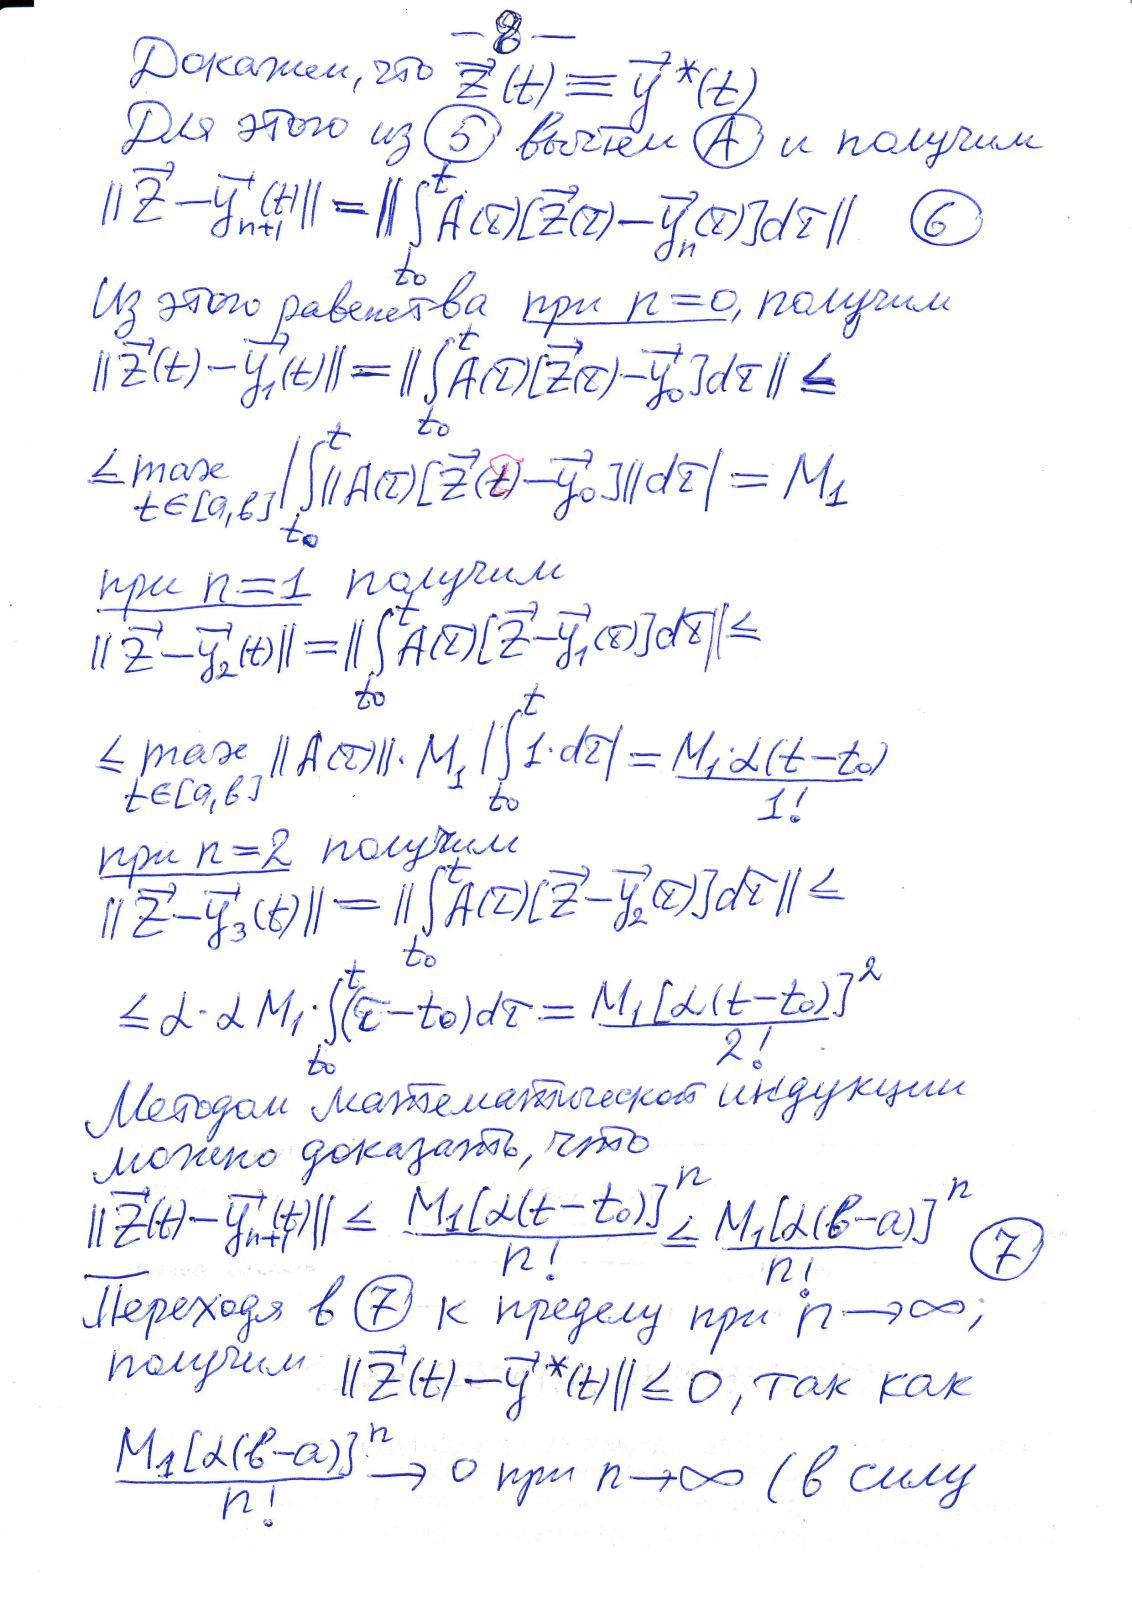 — 8 —
Докажем, что z⃗(t) ≡ y⃗*(t)
Для этого из (5) вычтем (A) и получим
||z⃗ − y⃗ₙ₊₁(t)|| = ||∫_{t₀}^{t} A(τ)[z⃗(τ) − y⃗ₙ(τ)]dτ|| (6)
Из этого равенства при n=0, получим
||z⃗(t) − y⃗₁(t)|| = ||∫_{t₀}^{t} A(τ)[z⃗(τ) − y⃗₀]dτ|| ≤
≤ max_{t∈[a,b]} |∫_{t₀}^{t} ||A(τ)[z⃗(τ) − y⃗₀]||dτ| = M₁
при n=1 получим
||z⃗ − y⃗₂(t)|| = ||∫_{t₀}^{t} A(τ)[z⃗ − y⃗₁(τ)]dτ|| ≤
≤ max_{t∈[a,b]} ||A(τ)||·M₁ |∫_{t₀}^{t} 1·dτ| = M₁·α(t−t₀)/1!
при n=2 получим
||z⃗ − y⃗₃(t)|| = ||∫_{t₀}^{t} A(τ)[z⃗ − y⃗₂(τ)]dτ|| ≤
≤ α·αM₁·∫_{t₀}^{t} (τ−t₀)dτ = M₁[α(t−t₀)]²/2!
Методом математической индукции
можно доказать, что
||z⃗(t) − y⃗ₙ₊₁(t)|| ≤ M₁[α(t−t₀)]ⁿ/n! ≤ M₁[α(b−a)]ⁿ/n! (7)
Переходя в (7) к пределу при n→∞;
получим ||z⃗(t) − y⃗*(t)|| ≤ 0, так как
M₁[α(b−a)]ⁿ/n! → 0 при n→∞ (в силу